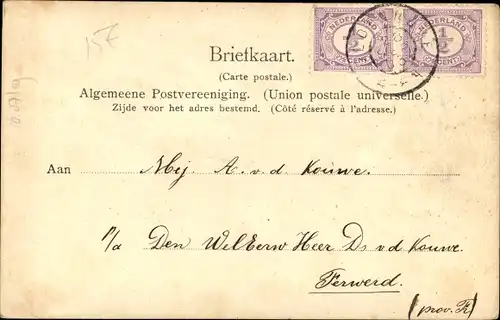 15
NEDERLAND NEDERLAND
½ ½
CENT CENT
Briefkaart.
(Carte postale.)
Algemeene Postvereeniging. (Union postale universelle.)
Zijde voor het adres bestemd. (Côté réservé à l'adresse.)
Aan Mej A. v. d. Kouwe.
p/a Den WelEerw Heer Ds v. d Kouwe.
Ferwerd.
(prov. Fr)